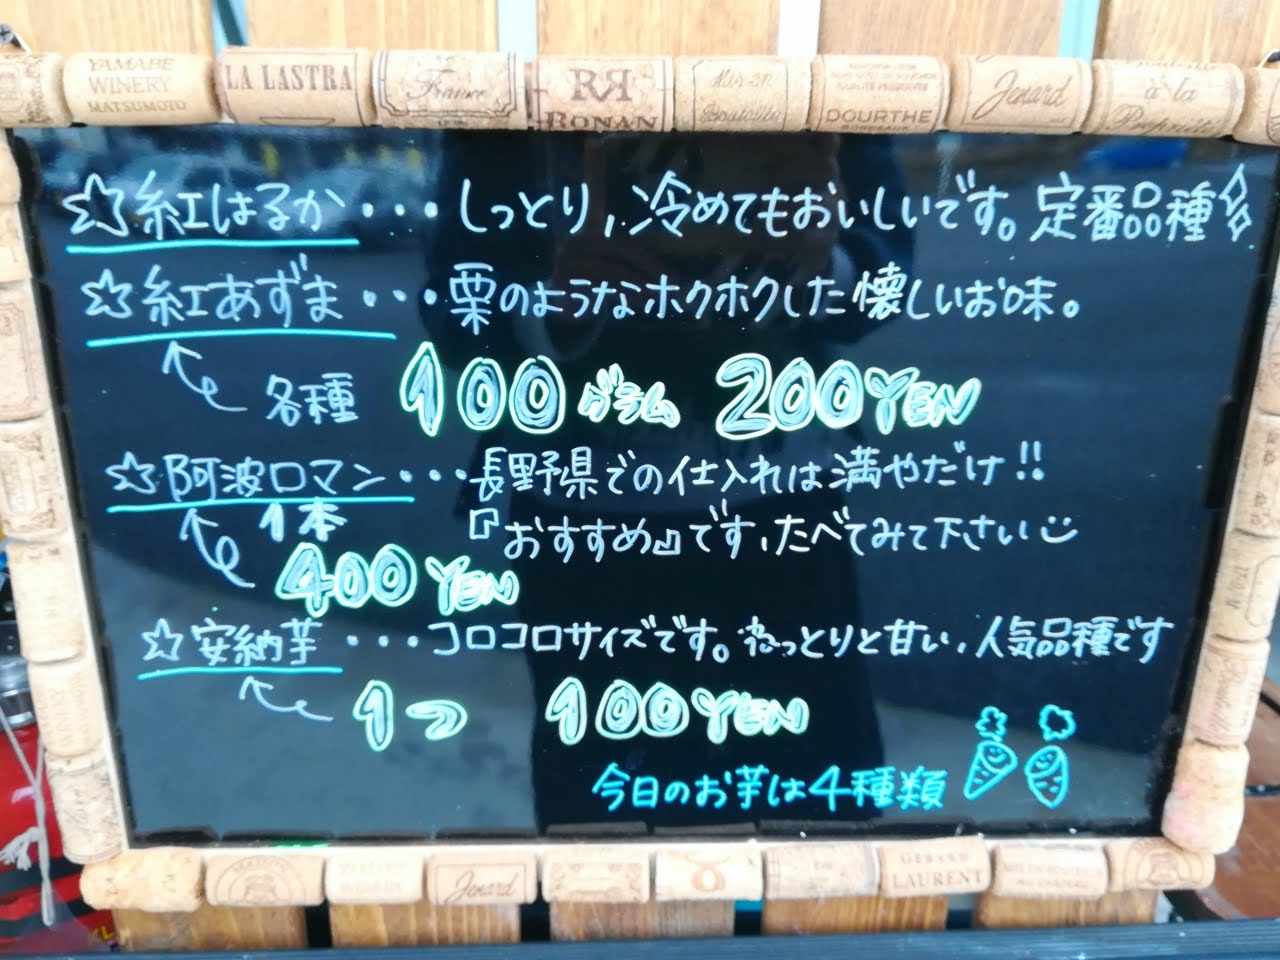 YAMABE
WINERY
MATSUMOTO
LA LASTRA
France
RR
RONAN
DOURTHE
BORDEAUX
Jenard
à la
Propriété
☆紅はるか・・・しっとり,冷めてもおいしいです。定番品種
☆紅あずま・・・栗のようなホクホクした懐しいお味。
各種 100グラム 200YEN
☆阿波ロマン・・・長野県での仕入れは満やだけ!!
1本 『おすすめ』です,たべてみて下さい
400 YEN
☆安納芋・・・コロコロサイズです。ねっとりと甘い,人気品種です
1つ 100YEN
今日のお芋は4種類
Jenard
GÉRARD
LAURENT